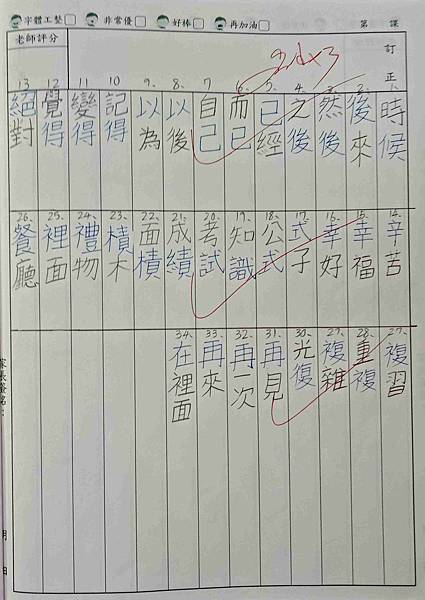 字體工整 非常優 好棒 再加油 第 課
老師評分
訂正
1. 時候
2. 後來
3. 然後
4. 之後
5. 已經
6. 而已
7 自己
8. 以後
9. 以為
10 記得
11 變得
12 覺得
13 絕對
14. 辛苦
15. 幸福
16. 幸好
17. 式子
18. 公式
19. 知識
20. 考試
21. 成績
22. 面積
23. 積木
24. 禮物
25. 裡面
26. 餐廳
27. 複習
28. 重複
29. 複雜
30. 光復
31. 再見
32. 再一次
33. 再來
34. 在裡面
家長簽名：
月 日